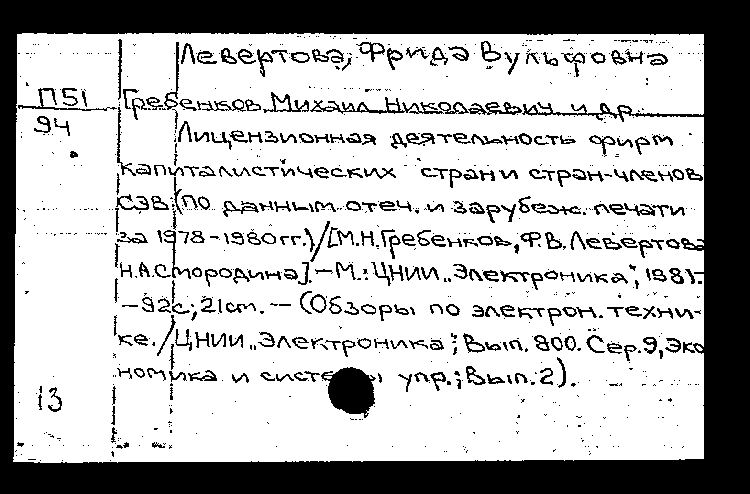 Левертова, Фрида Вульфовна
П51 Гребенков Михаил Николаевич и др.
94 Лицензионная деятельность фирм
капиталистических стран и стран-членов
СЭВ (по данным отеч. и зарубеж. печати
за 1978-1980гг.)/[М.Н.Гребенков, Ф.В.Левертова
Н.А.Смородина].-М.: ЦНИИ „Электроника", 1981.-
-92с; 21см. - (Обзоры по электрон. техни-
ке./ЦНИИ „Электроника"; Вып. 800. Сер.9, Эко
номика и системы упр.; Вып. 2).
13